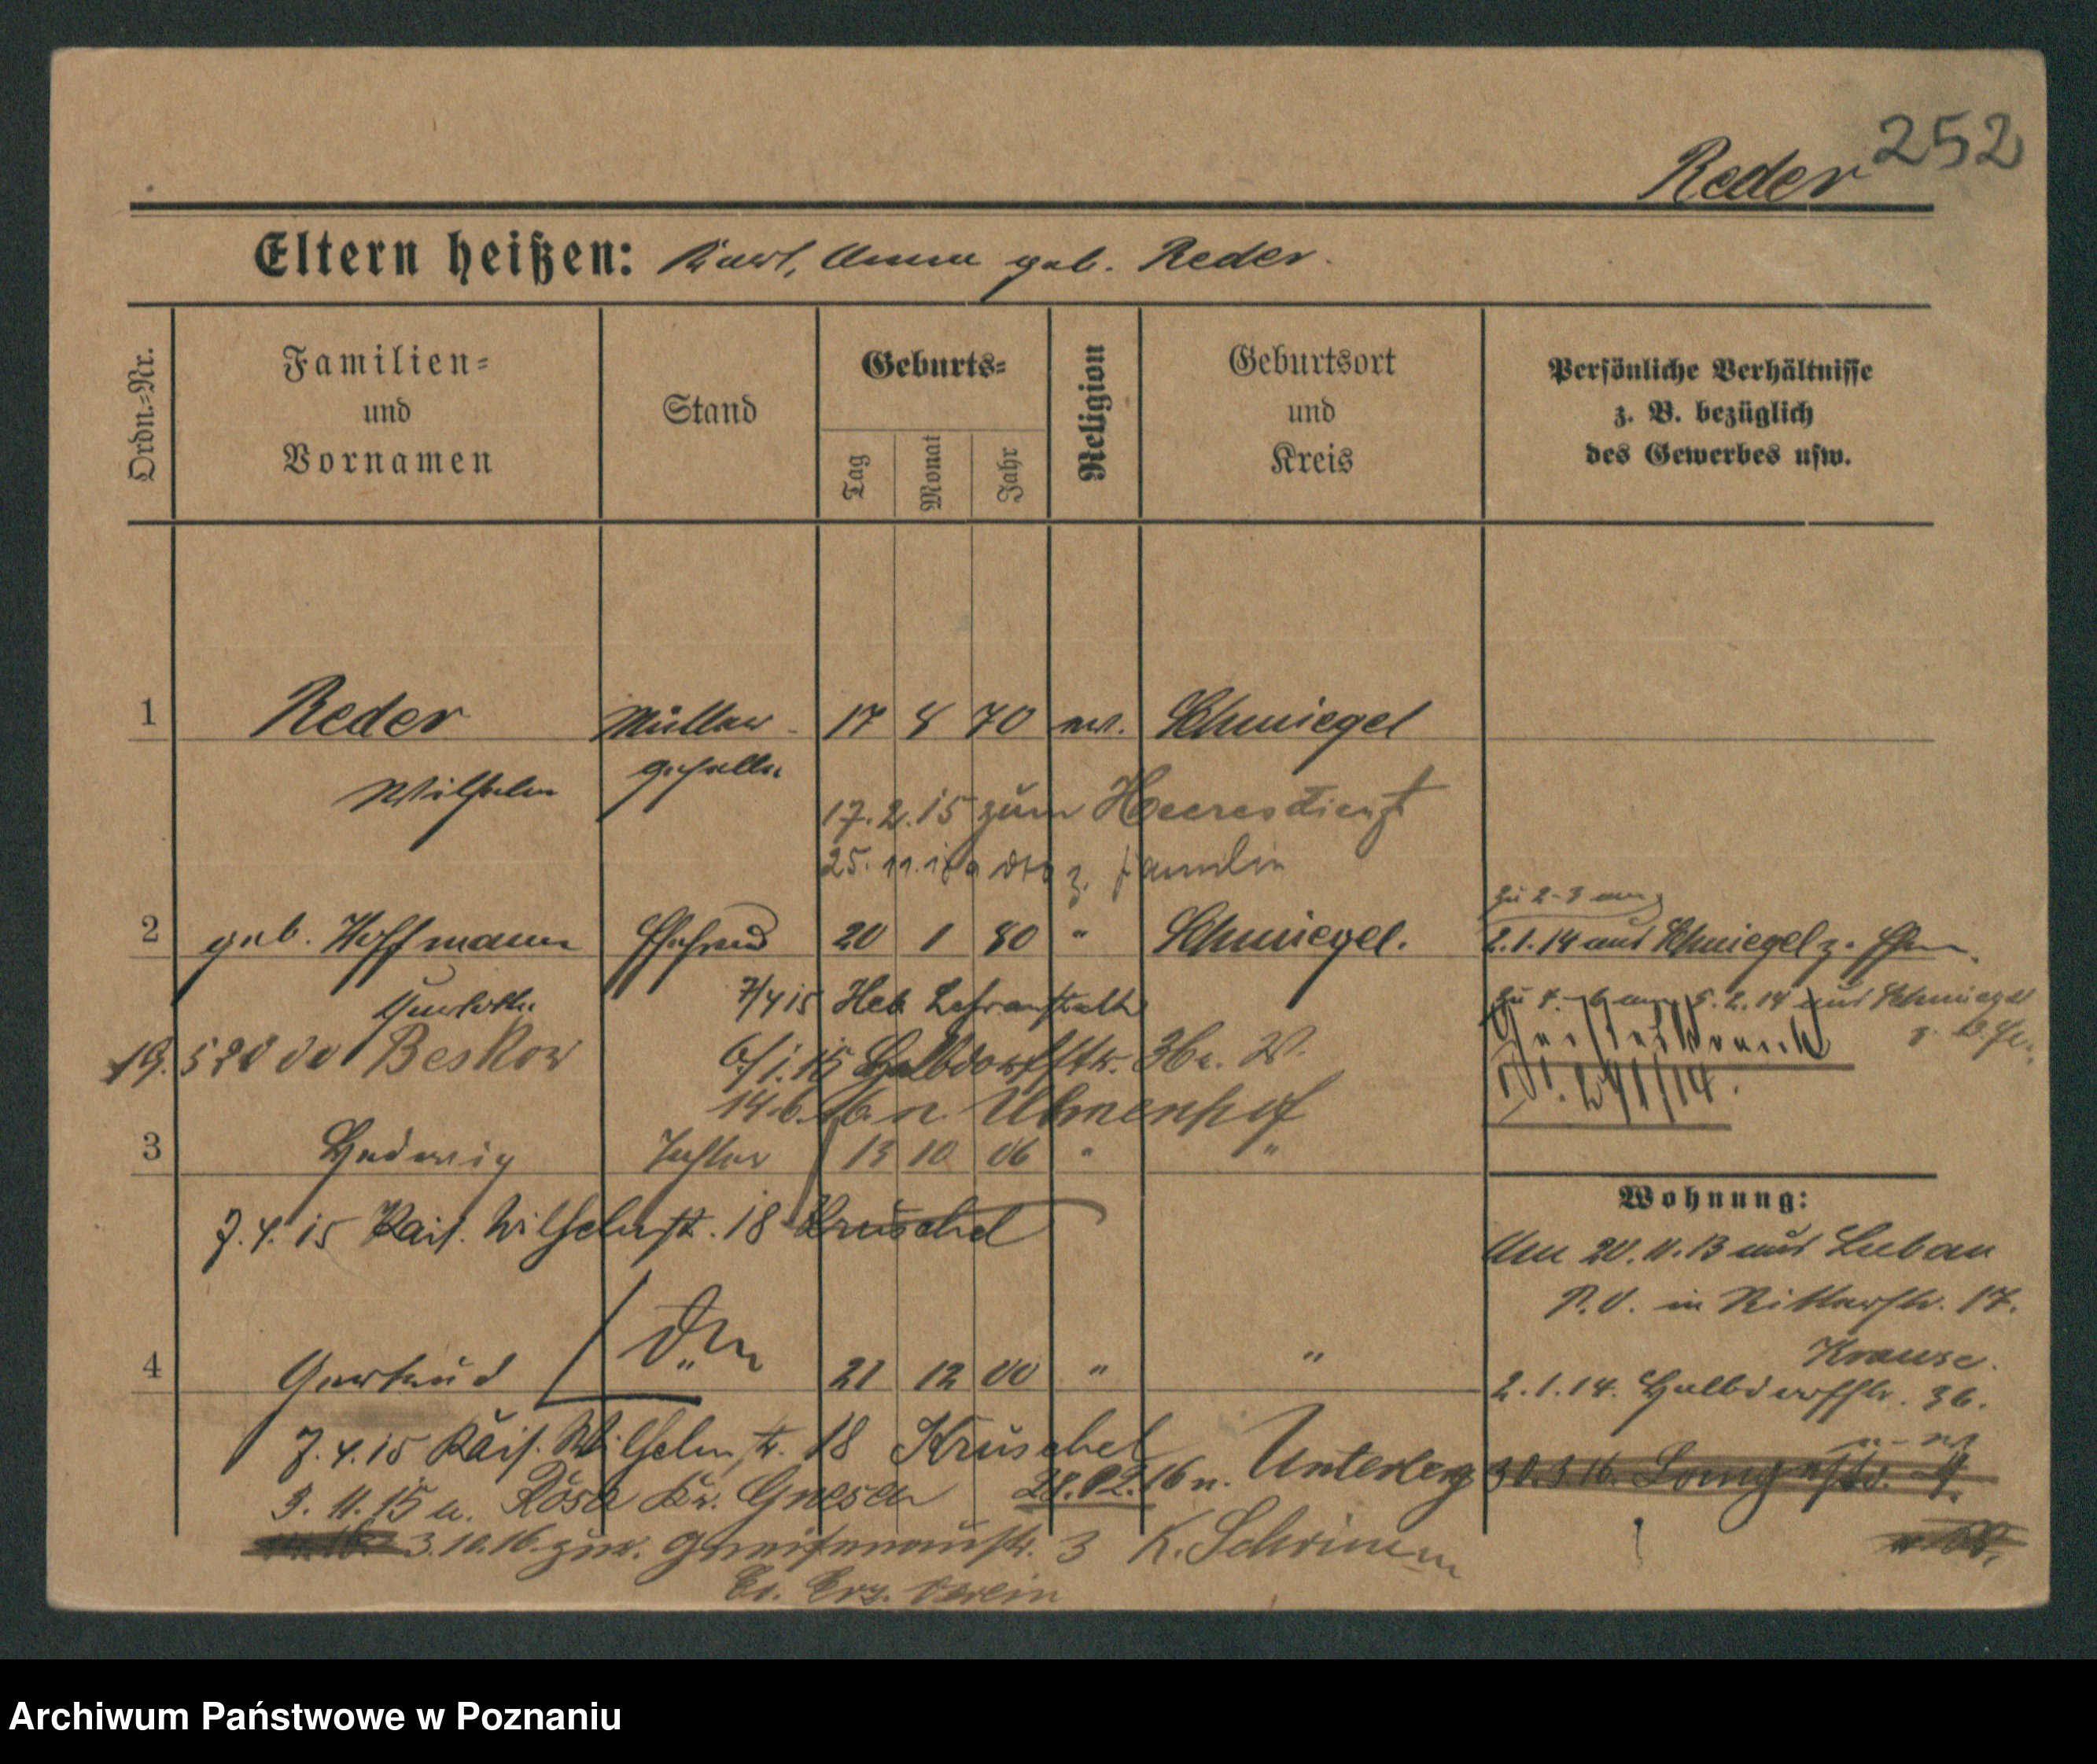 252
Reder
Eltern heißen: Karl, Anna geb. Reder.
Ordn.-Nr.
Familien-
und
Vornamen
Stand
Geburts-
Tag
Monat
Jahr
Religion
Geburtsort
und
Kreis
Persönliche Verhältnisse
z. B. bezüglich
des Gewerbes usw.
1 Reder Müller- 17 8 70 ev. Schmiegel
Wilhelm geselle
17.2.15 zum Heeresdienst
25.11. z. Familie
zu 2-3 am
2 geb. Hoffmann Ehefrau 20 1 80 " Schmiegel.
2.1.14 aus Schmiegel z.
7/4 15 Heb. Lehranstalt
5.2.14 aus Schmiegel
19. Beskow
6/1.15 Halbdorfstr. 36. W.
14.6.16. n. Ulmenhof
3 Hedwig Tochter 13 10 06 " "
7.4.15 Kais. Wilhelmst. 18 Kruschel
Wohnung:
Am 20.11.13 aus Luban
P.O. in Ritterstr. 17.
Krause.
4 Gertrud " 21 12 00 " "
2.1.14. Halbdorfstr. 36.
7.4.15 Kais. Wilhelmstr. 18 Kruschel
3.11.15 n. Rosa Kr. Gnesen
28.02.16 n. Unterberg
30.3.16.
3.10.16. zur. Gneisenaustr. 3
K. Schrimm
Ev. Erz. Verein
Archiwum Państwowe w Poznaniu